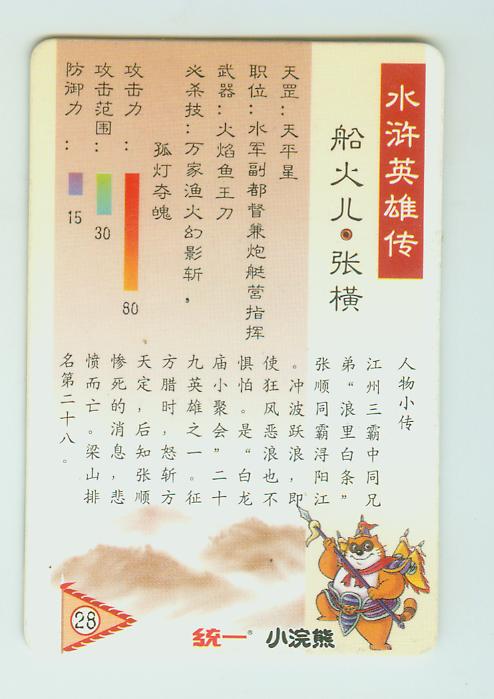 水浒英雄传
船火儿·张横
天罡：天平星
职位：水军副都督兼炮艇营指挥
武器：火焰鱼王刀
必杀技：万家渔火幻影斩，
孤灯夺魄
攻击力：
80
攻击范围：
30
防御力：
15
人物小传
江州三霸中同兄
弟“浪里白条”
张顺同霸浔阳江
。冲波跃浪，即
使狂风恶浪也不
惧怕。是“白龙
庙小聚会”二十
九英雄之一。征
方腊时，怒斩方
天定，后知张顺
惨死的消息，悲
愤而亡。梁山排
名第二十八。
28
统一® 小浣熊